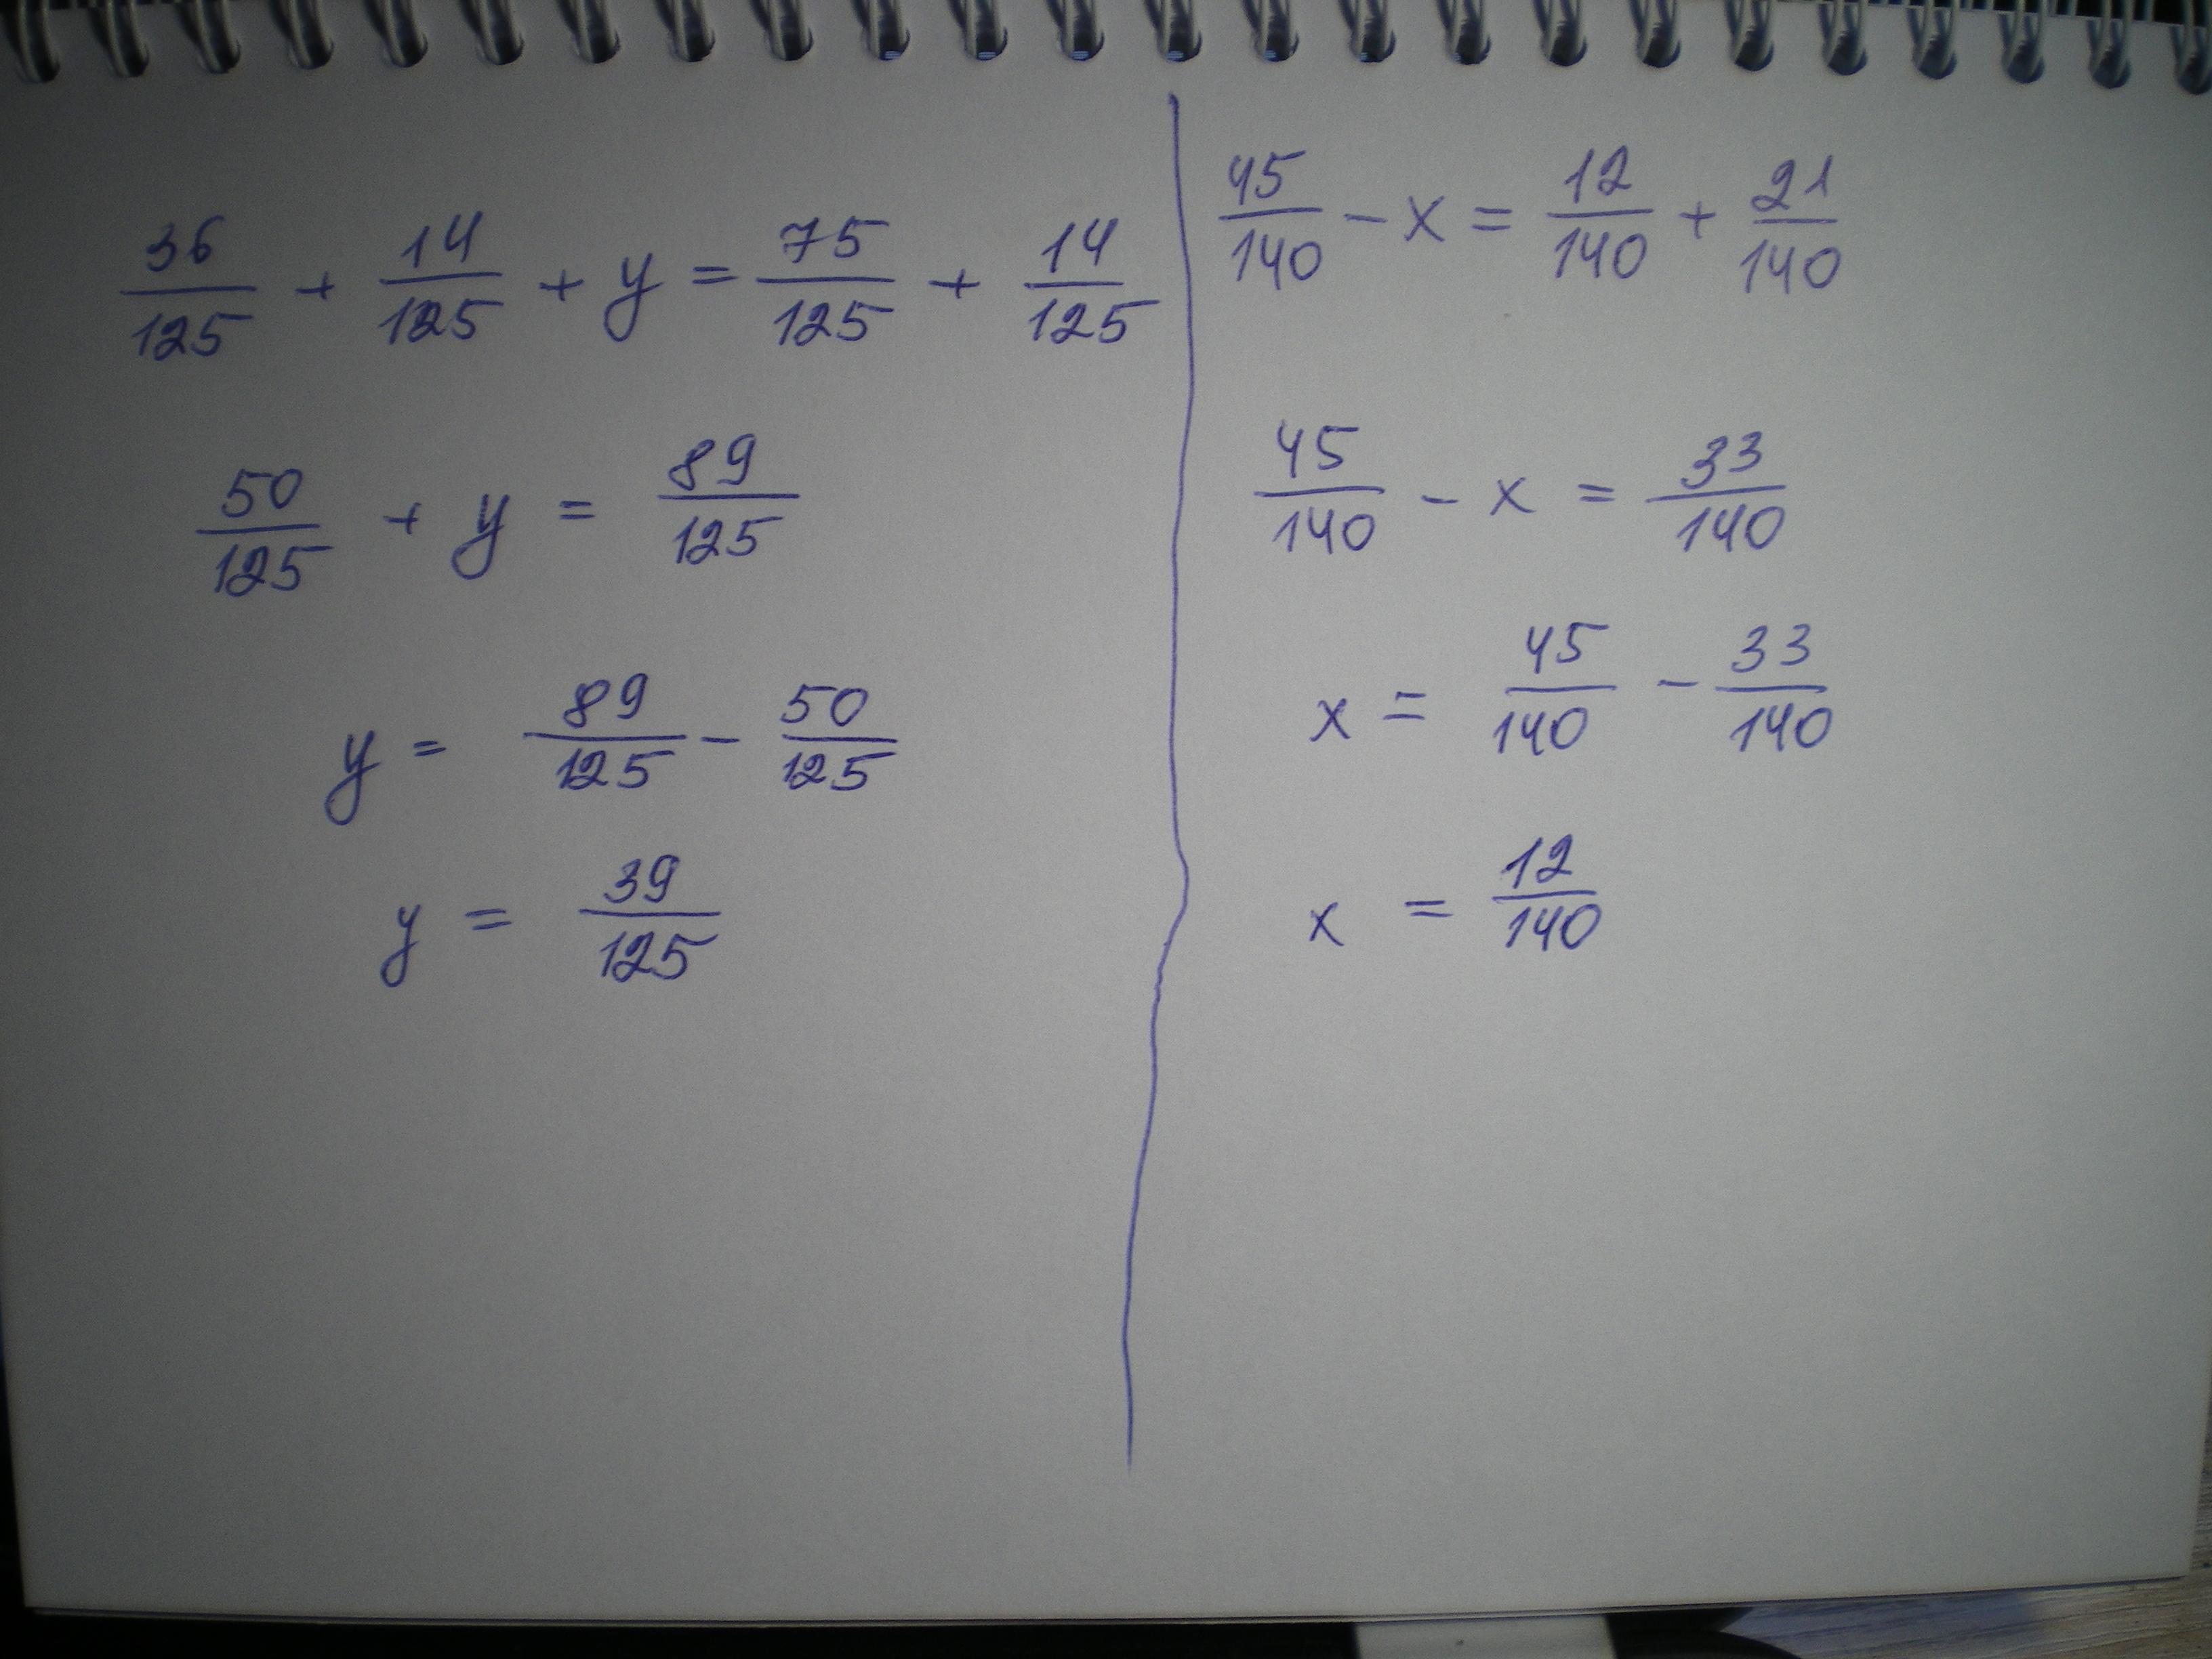 36/125 + 14/125 + y = 75/125 + 14/125
50/125 + y = 89/125
y = 89/125 - 50/125
y = 39/125
45/140 - x = 12/140 + 21/140
45/140 - x = 33/140
x = 45/140 - 33/140
x = 12/140